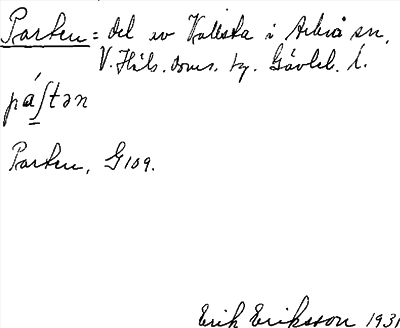 Parten = del av Vallsta i Arbrå sn.
V. Häls. doms. hg. Gävleb. l.
pá̱ʃtən
Parten, G 109.
Erik Eriksson 1931